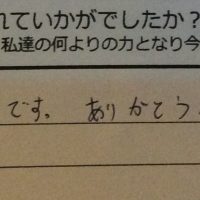 れていかがでしたか?
私達の何よりの力となり今
です。ありがとう